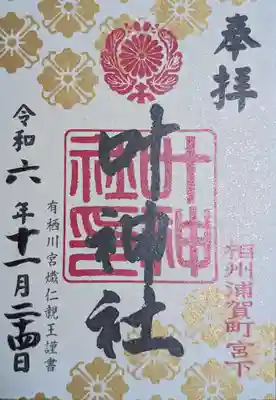 奉拝
相州浦賀町宮下
叶神社
叶神社印
有栖川宮熾仁親王謹書
令和六年十一月二四日